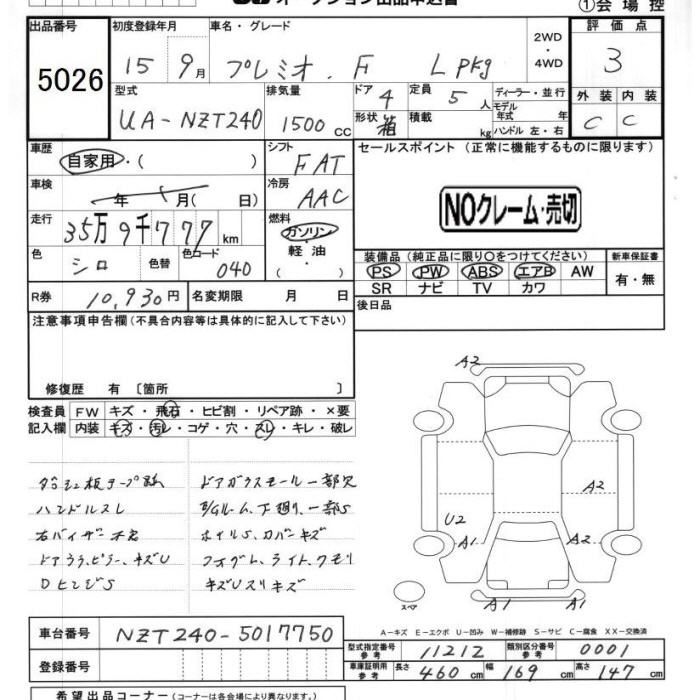 オークション出品申込書
①会場控
出品番号 5026
初度登録年月 15 9月
車名・グレード プレミオ. F Lpkg
2WD・4WD
評価点 3
型式 UA-NZT240
排気量 1500 cc
ドア 4
形状 箱
定員 5 人
積載 kg
ディーラー・並行
モデル年式 年
ハンドル 左・右
外装 C 内装 C
車歴 自家用・( )
シフト FAT
セールスポイント (正常に機能するものに限ります)
NOクレーム・売切
車検 年 月( 日)
冷房 AAC
走行 35万9千777 km
燃料 ガソリン・軽油・( )
色 シロ 色替 色コード 040
装備品 (純正品に限り○をつけてください)
PS PW ABS エアB AW
SR ナビ TV カワ
新車保証書 有・無
R券 10,930円 名変期限 月 日
後日品
注意事項申告欄(不具合内容等は具体的に記入して下さい)
修復歴 有 〔箇所 〕
検査員記入欄
FW キズ・飛石・ヒビ割・リペア跡・×要
内装 キズ・汚レ・コゲ・穴・スレ・キレ・破レ
ダッシュ板テープ跡
ハンドルスレ
右バイザー不名
ドアウラ,ピラー,キズU
DヒンジS
ドアガラスモール一部欠
E/Gルーム,下廻り,一部S
ホイルS,カバーキズ
フォグム,ライト,クモリ
キズUスリキズ
A2
A2
A2
U2
A1
A1
A1
A1
スペア
A-キズ E-エクボ U-凹み W-補修跡 S-サビ C-腐食 XX-交換済
車台番号 NZT240-5017750
登録番号
型式指定番号 参考 11212
類別区分番号 参考 0001
車庫証明用 参考 長さ 460 cm 幅 169 cm 高さ 147 cm
希望出品コーナー(コーナーは各会場により異なります)